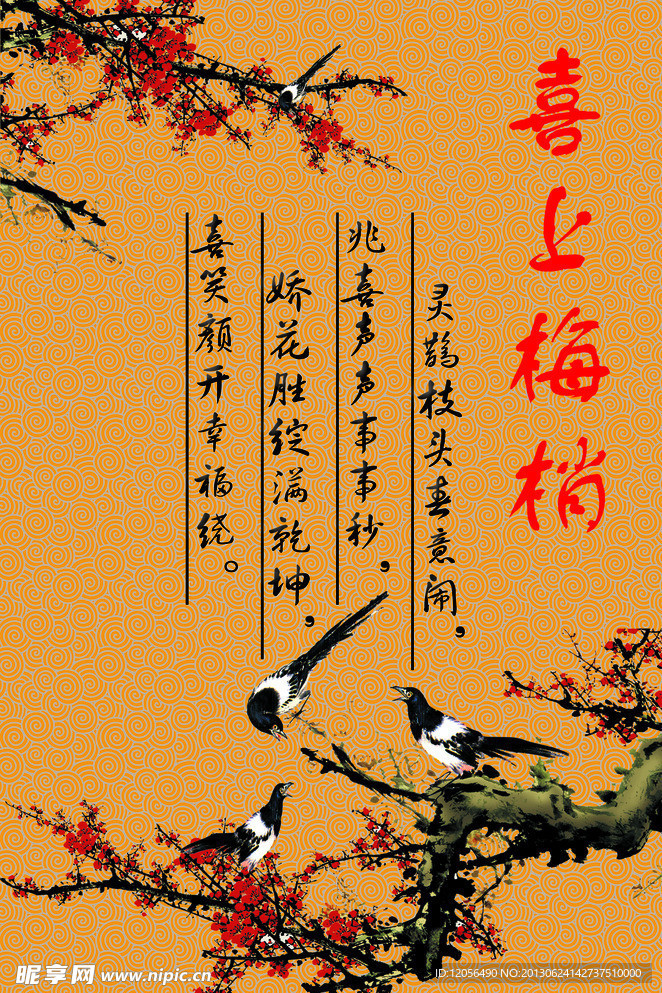 喜上梅梢
灵鹊枝头春意闹，
兆喜声声事事秒，
娇花胜绽满乾坤，
喜笑颜开幸福绕。
昵享网 www.nipic.cn
ID:12056490 NO:20130624142737510000